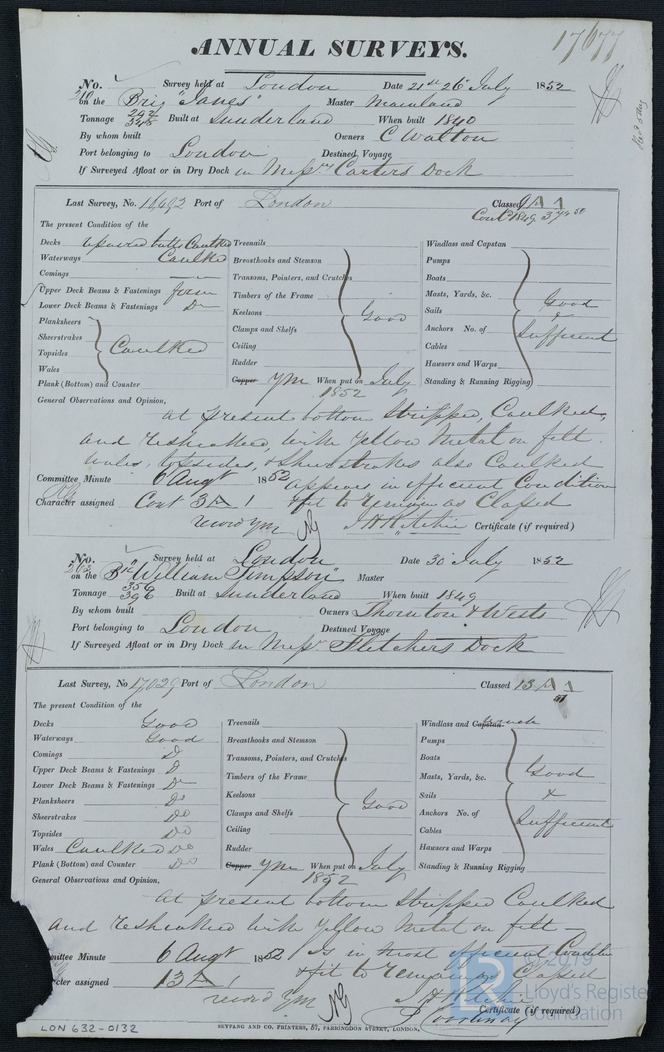 17677
ANNUAL SURVEYS.
No. 210 Survey held at London Date 21st 26 July 1852
on the Brig "Janes" Master Mainland
Tonnage 292 348 Built at Sunderland When built 1840
By whom built Owners C Walton
Port belonging to London Destined Voyage
If Surveyed Afloat or in Dry Dock in Messrs Carters Dock
Last Survey, No. 16,492 Port of London Classed 9 A 1
Cont 1849 3 yrs
The present Condition of the
Decks Caulked Treenails Windlass and Capstan
Waterways Caulked Breasthooks and Stemson Pumps
Comings Transoms, Pointers, and Crutches Boats
Upper Deck Beams & Fastenings firm Timbers of the Frame Masts, Yards, &c. Good
Lower Deck Beams & Fastenings Do Keelsons Good Sails &
Planksheers Clamps and Shelfs Anchors No. of Sufficient
Sheerstrakes Ceiling Cables
Topsides Caulked Rudder Hausers and Warps
Wales Copper YM When put on July Standing & Running Rigging
Plank (Bottom) and Counter 1852
General Observations and Opinion,
at present bottom Stripped, Caulked,
and resheathed with Yellow Metal on felt.
wales, topsides, & Sheerstrakes also Caulked
Committee Minute 6 Augt 1852 appears in efficient Condition
Character assigned Cont 3 A 1 & fit to remain as Classed
record YM Certificate (if required)
No. 203 Survey held at London Date 30 July 1852
on the Bk "William Simpson" Master
Tonnage 356 396 Built at Sunderland When built 1849
By whom built Owners Thornton & Wests
Port belonging to London Destined Voyage
If Surveyed Afloat or in Dry Dock in Messrs Fletchers Dock
Last Survey, No 17,029 Port of London Classed 13 A 1
51
The present Condition of the
Decks Good Treenails Windlass and Capstan
Waterways Good Breasthooks and Stemson Pumps
Comings Do Transoms, Pointers, and Crutches Boats Good
Upper Deck Beams & Fastenings Do Timbers of the Frame Masts, Yards, &c.
Lower Deck Beams & Fastenings Do Keelsons Good Sails &
Planksheers Do Clamps and Shelfs Anchors No. of Sufficient
Sheerstrakes Do Ceiling Cables
Topsides Do Rudder Hausers and Warps
Wales Caulked Do Copper YM When put on July Standing & Running Rigging
Plank (Bottom) and Counter Do 1852
General Observations and Opinion,
at present bottom Stripped Caulked
and resheathed with Yellow Metal on felt —
mittee Minute 6 Augt 1852 Is in most efficient Condition
cter assigned 13 A 1 & fit to remain as Classed
record YM Certificate (if required)
P Courtenay
LON 632-0132
SEYFANG AND CO. PRINTERS, 57, FARRINGDON STREET, LONDON,
© 2019
Lloyd's Register
Foundation